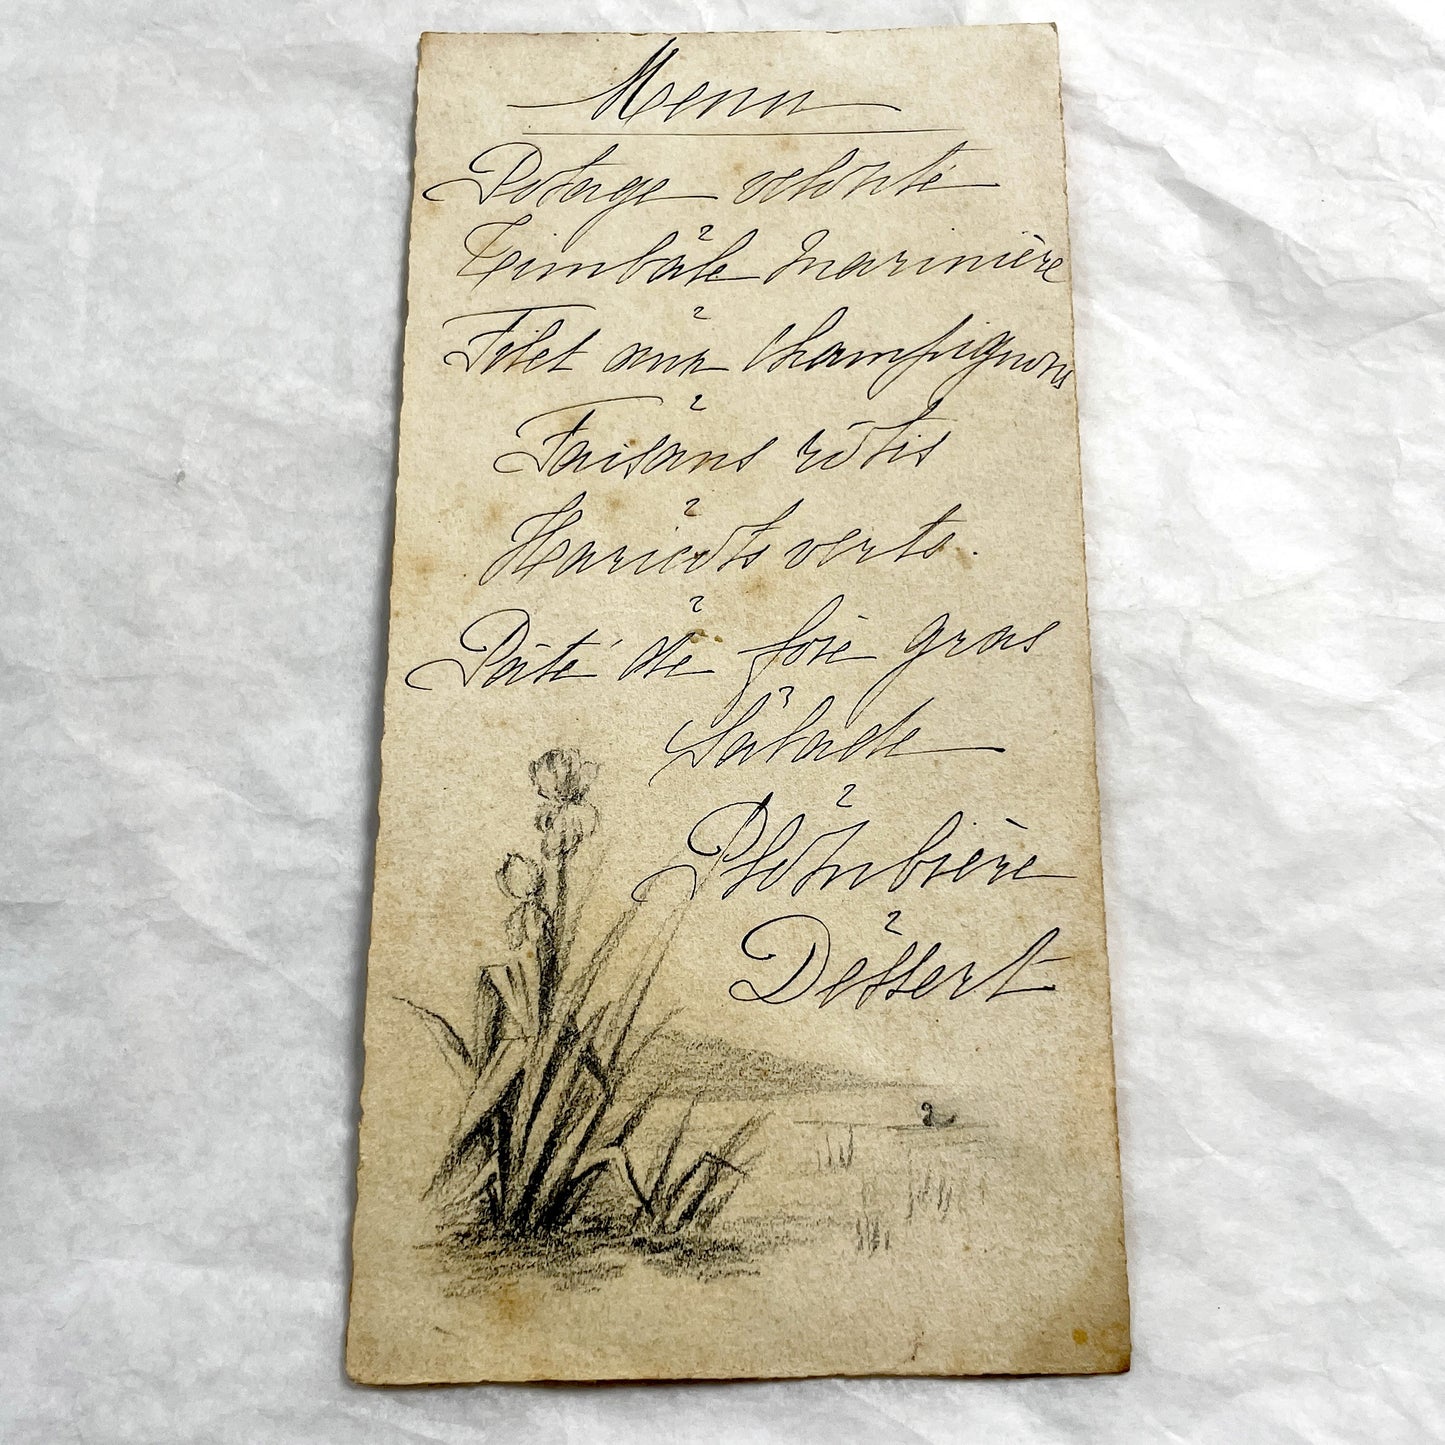 Menu
Potage velouté
Timbale marinière
Filet aux champignons
Faisans rôtis
Haricots verts.
Pâté de foie gras
Salade
Plombière
Dessert